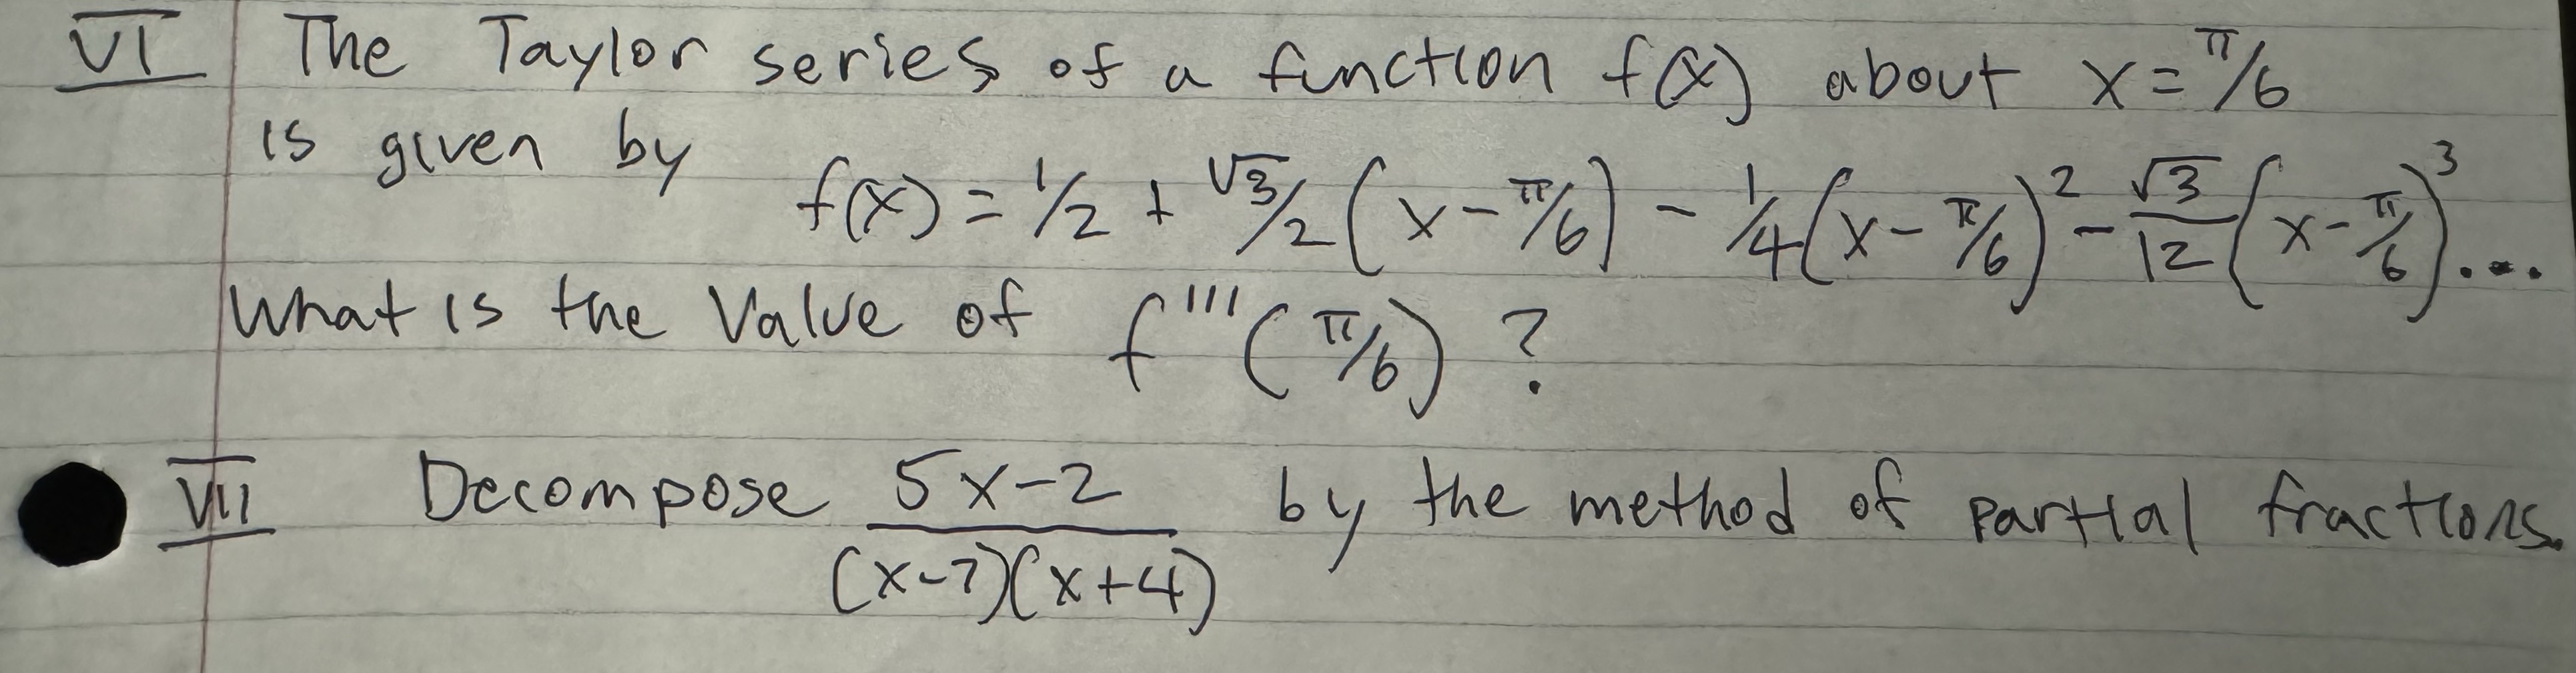 VI The Taylor series of a function f(x) about x = π/6
is given by
f(x) = 1/2 + √3/2 (x - π/6) - 1/4 (x - π/6)² - √3/12 (x - π/6)³ ....
What is the Value of f'''(π/6) ?
VII Decompose (5x-2)/((x-7)(x+4)) by the method of partial fractions.